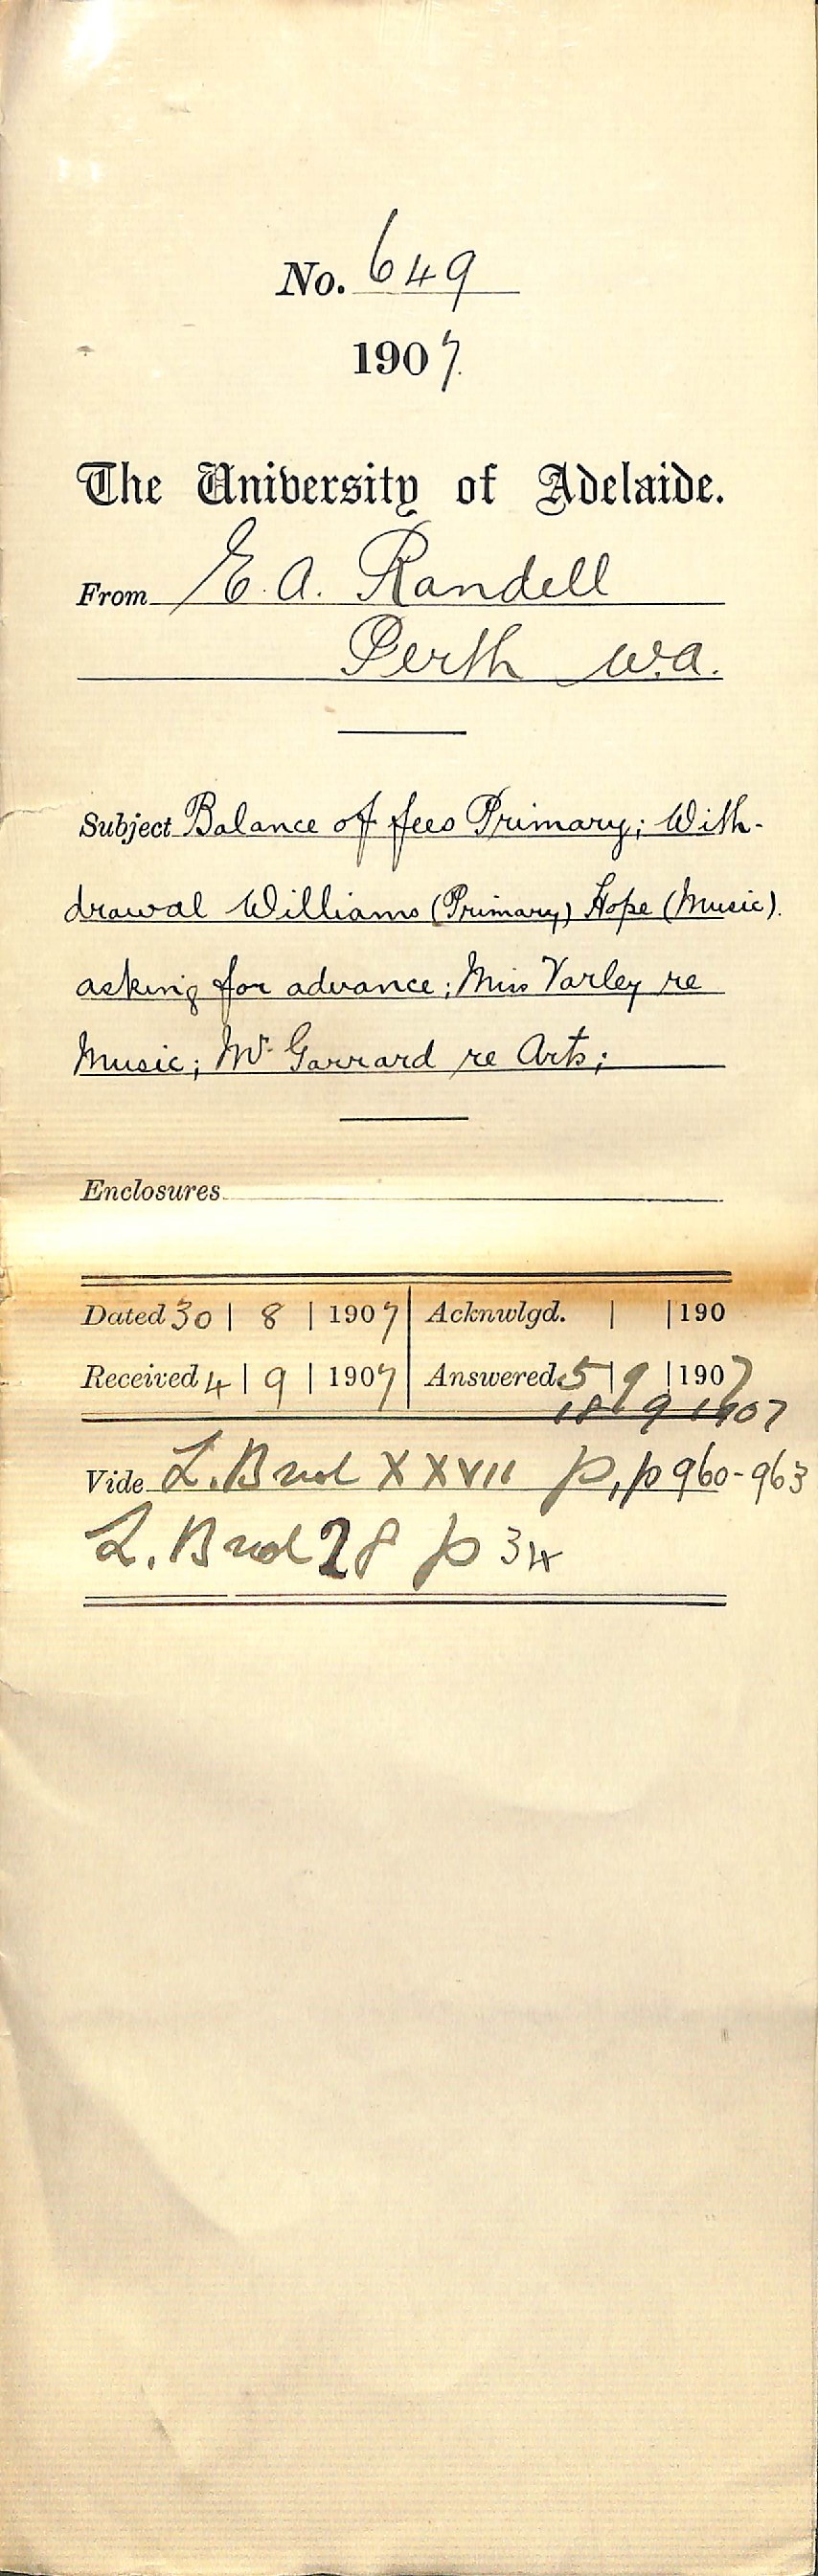 No. 649
1907.
The University of Adelaide.
From E. A. Randell
Perth W.A.
Subject Balance of fees Primary; With-
drawal Williams (Primary) Hope (Music).
asking for advance; Miss Varley re
Music; Mr Garrard re Arts;
Enclosures
Dated 30 | 8 | 1907 Acknwlgd. | | 190
Received 4 | 9 | 1907 Answered 5 | 9 | 1907
18 9 1907
Vide L. B vol XXVII p,p 960-963
L. B vol 28 p 34